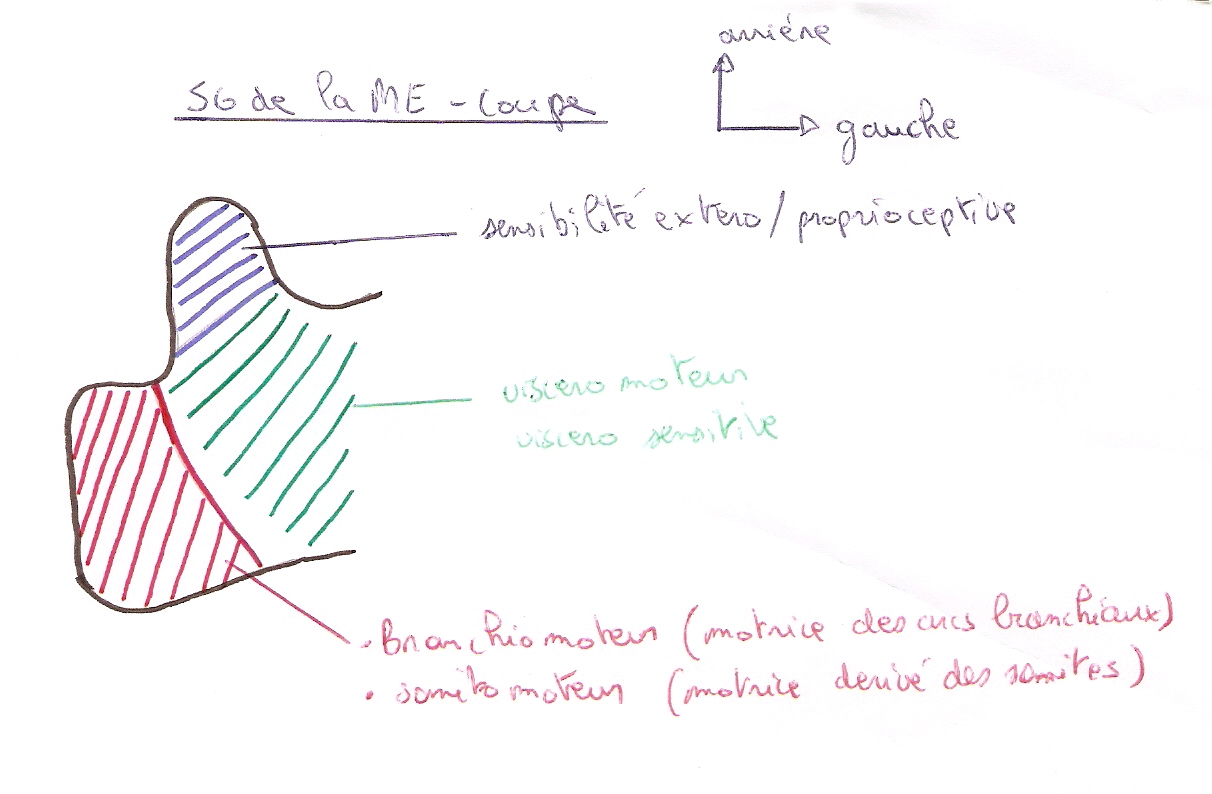 arrière
SG de la ME - Coupe
gauche
sensibilité extero / proprioceptive
viscero moteur
viscero sensitive
• Branchio moteur (motrice des arcs branchiaux)
• somito moteur (motrice derivé des somites)